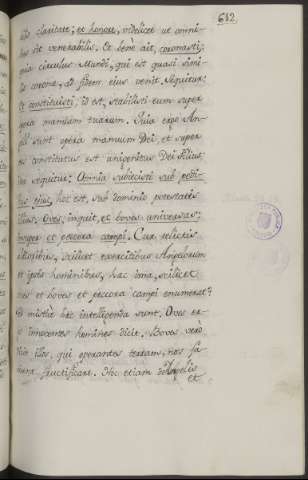 682
claritate; et honore, videlicet ut omni
sit venerabilis. Et bene ait, coronasti;
circulus Mundi, qui est quasi
corona, ad fidem eius venit. Sequitur:
Et constituisti, id est, stabilisti eum super
opera manuum tuarum. Quia ergo An
geli sunt opera manuum Dei, et super
constitutus est unigenitus Dei Filius,
sequitur: Omnia subiecisti sub pedi
bus eius, hoc est, sub dominio potestatis
illius. Oves, inquit, et boves universas;
insuper et pecora campi. Cur relictis
scilicet exercitibus Angelorum
et ipsis hominibus, hæc ima, scilicet
oves et boves et pecora campi enumerat?
mistice hæc intelligenda sunt. Oves er
go innocentes homines dicit. Boves verò
illos, qui operantes terram, nos fa
ciunt fructificare. Hoc etiam de Angelis
et